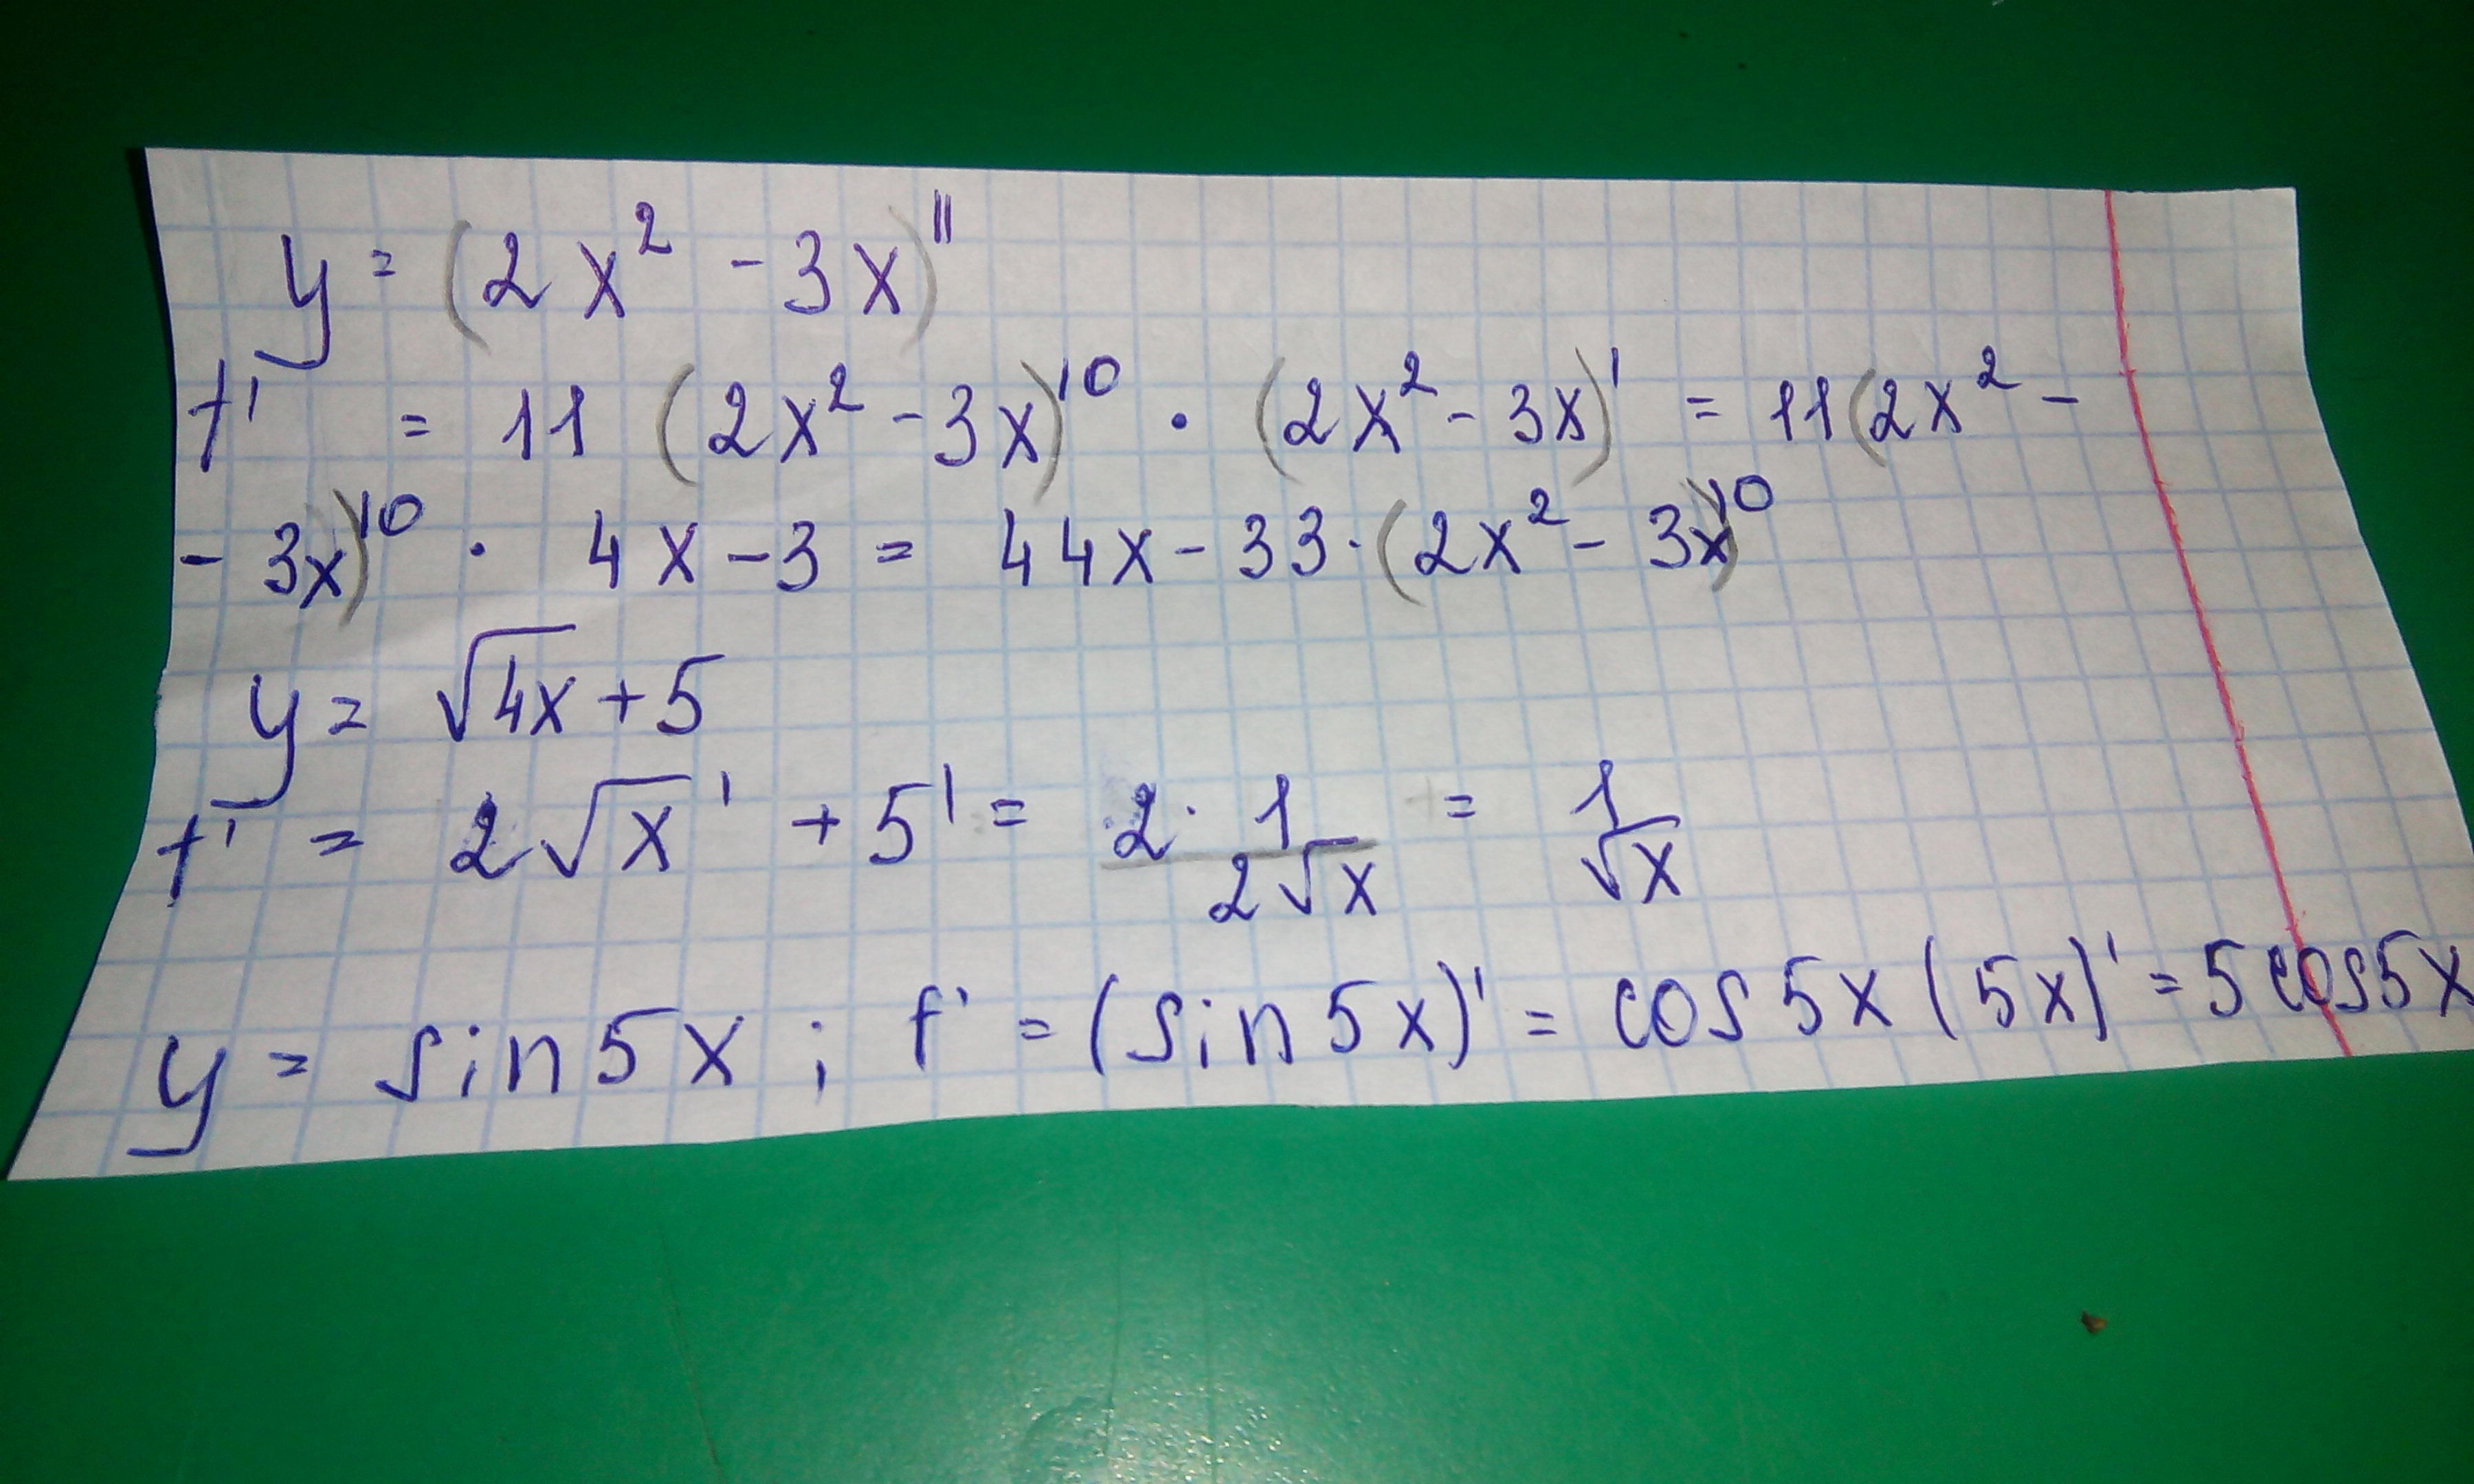 y = (2x² - 3x)¹¹
f' = 11 (2x² - 3x)¹⁰ · (2x² - 3x)' = 11(2x² -
- 3x)¹⁰ · 4x - 3 = 44x - 33 · (2x² - 3x)¹⁰
y = √4x + 5
f' = 2√x' + 5' = 2 · 1/2√x = 1/√x
y = sin5x ; f' = (sin5x)' = cos5x (5x)' = 5cos5x